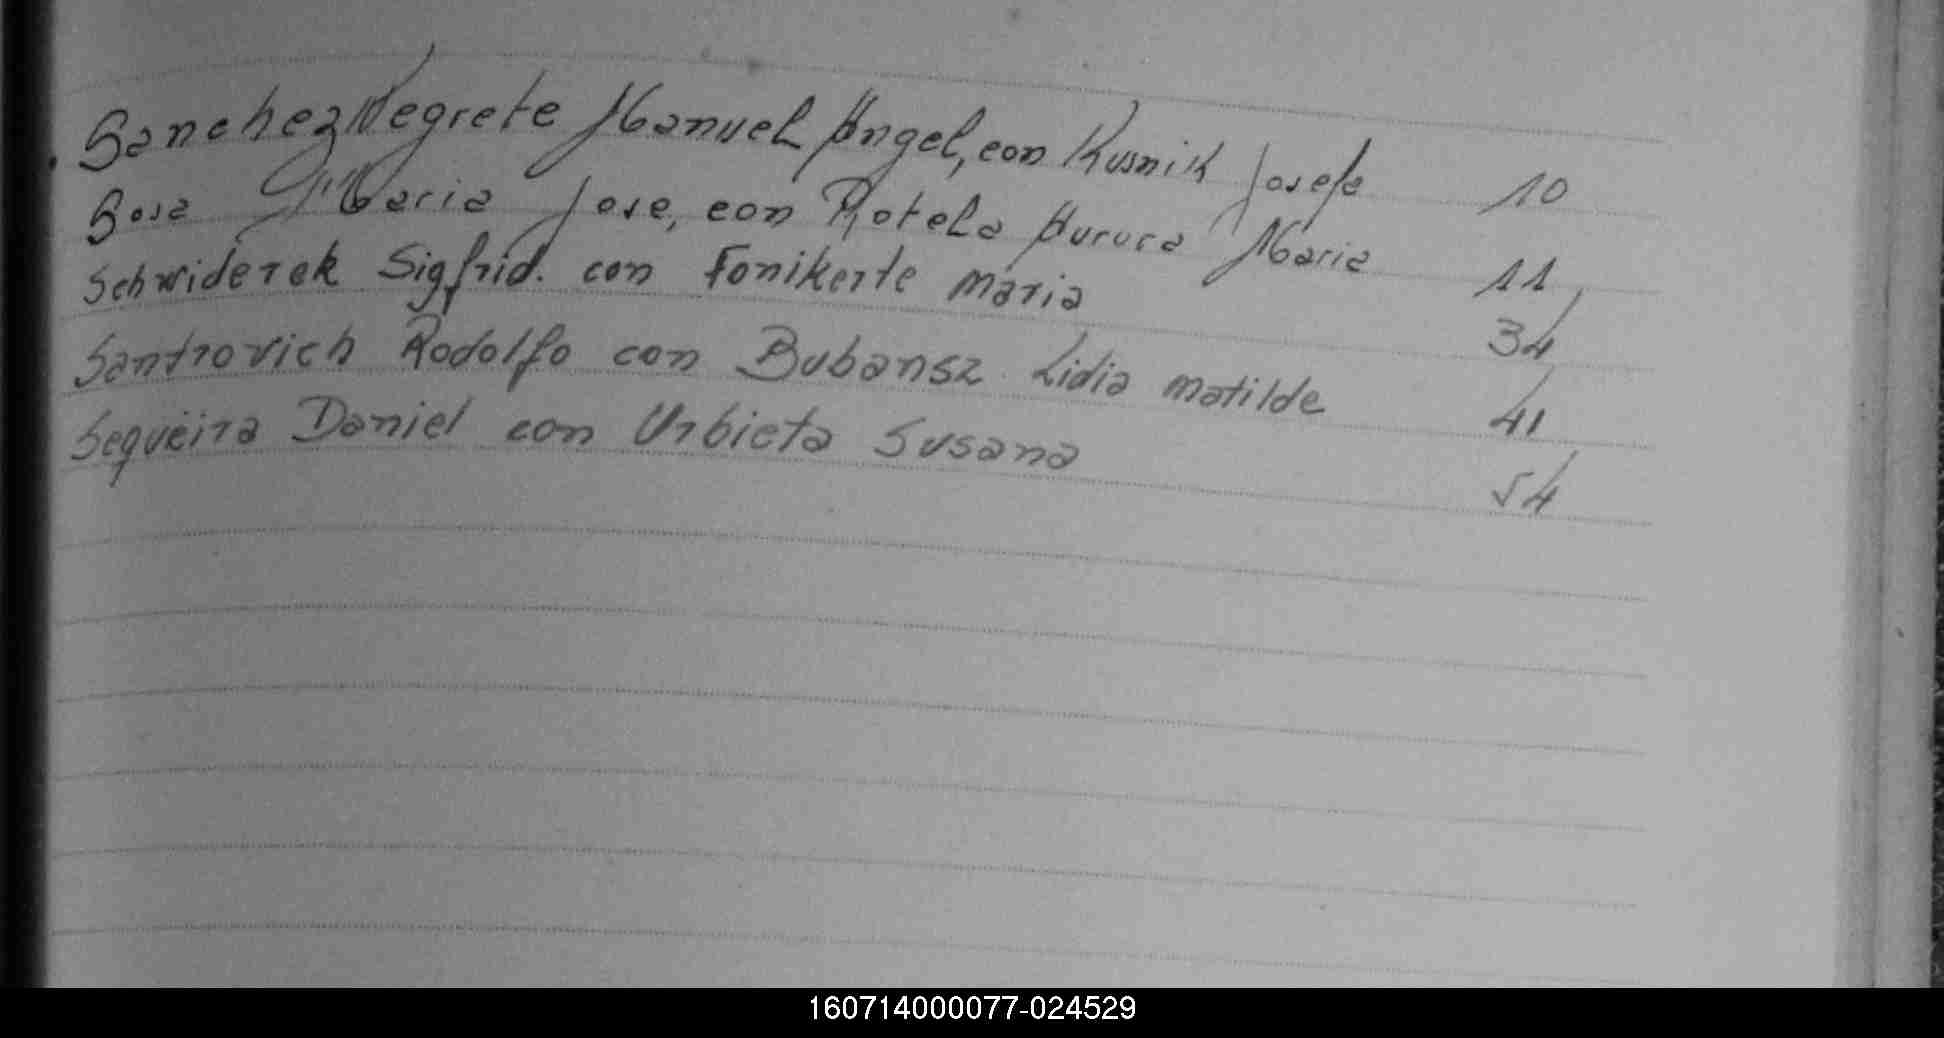 Sanchez Negrete Manuel Angel, con Kusnik Josefa 10
Sosa Maria Jose, con Rotela Aurora Maria 11
Schwiderek Sigfrid. con Fonikerte Maria 34
Santrovich Rodolfo con Bubansz Lidia Matilde 41
Sequëira Daniel con Urbieta Susana 54
160714000077-024529